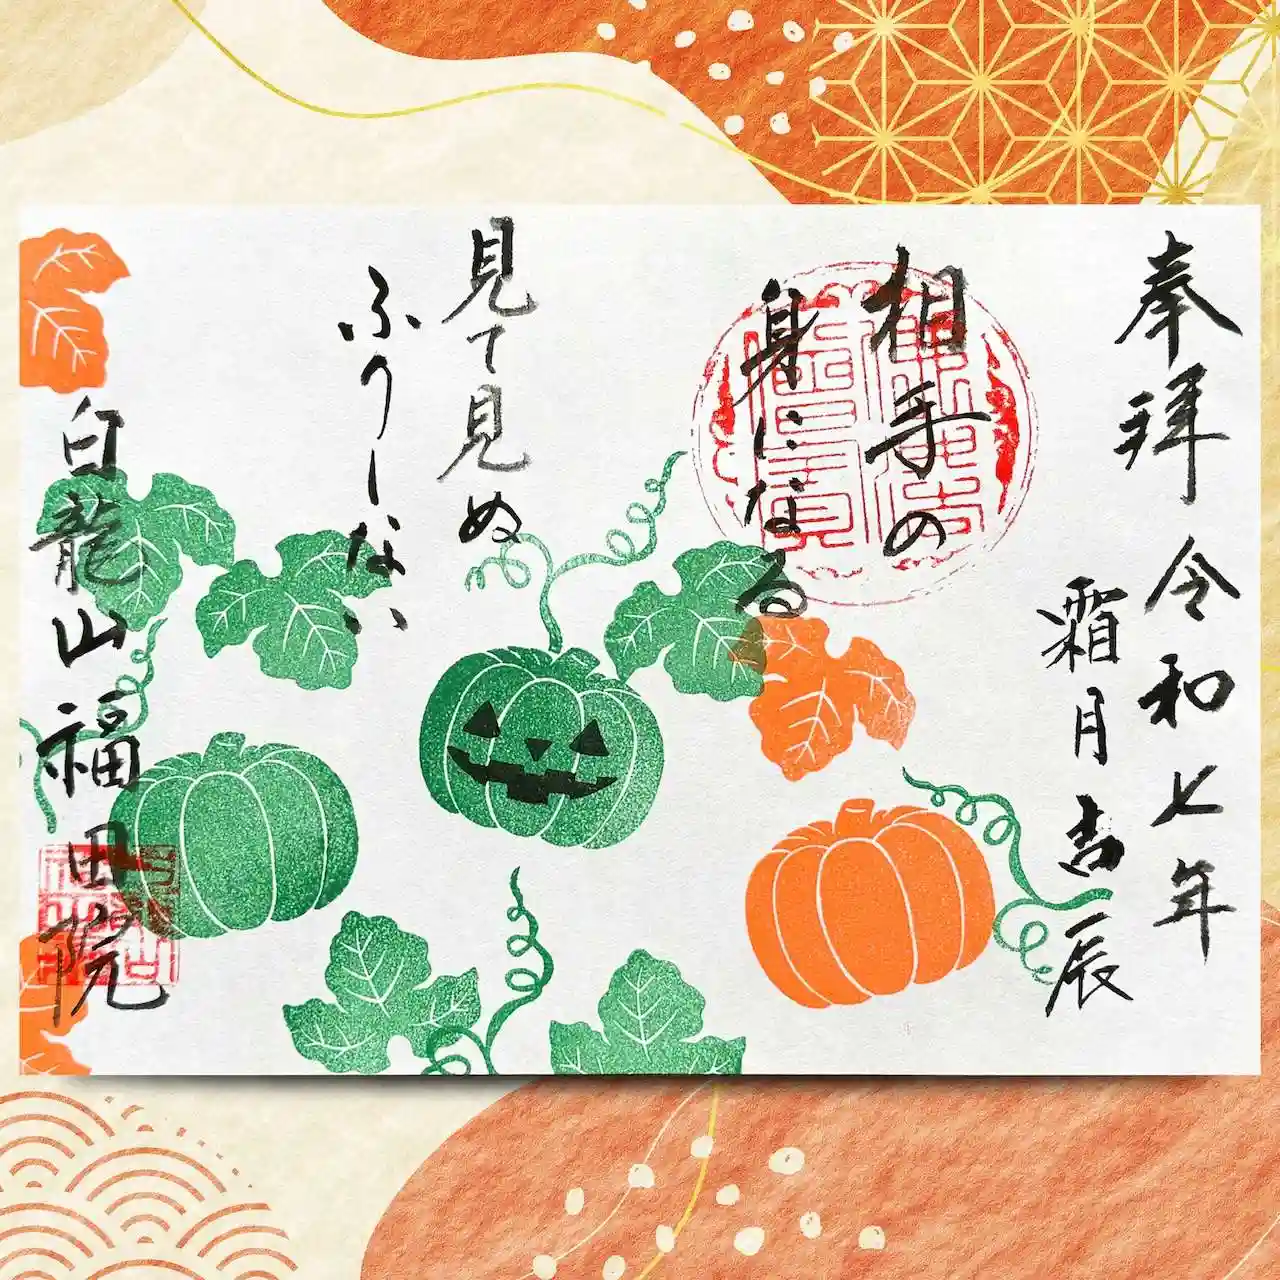 奉拝 令和七年
霜月吉辰
相手の
身になる
見て見ぬ
ふりしない
白龍山福田院